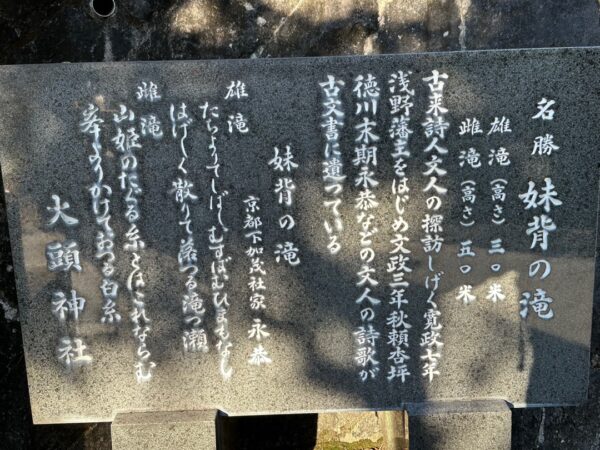 名勝 妹背の滝
雄滝(高さ)三〇米
雌滝(高さ)五〇米
古来詩人文人の探訪しげく寛政七年
浅野藩主をはじめ文政三年秋頼杏坪
徳川末期永恭などの文人の詩歌が
古文書に遺っている
妹背の滝
京都下加茂社家 永恭
雄滝
たちよりてしばしむすばむひまもなし
はげしく散りて落つる滝つ瀬
雌滝
山姫のたぐる糸とはこれならむ
よりかけておつる白糸
大頭神社